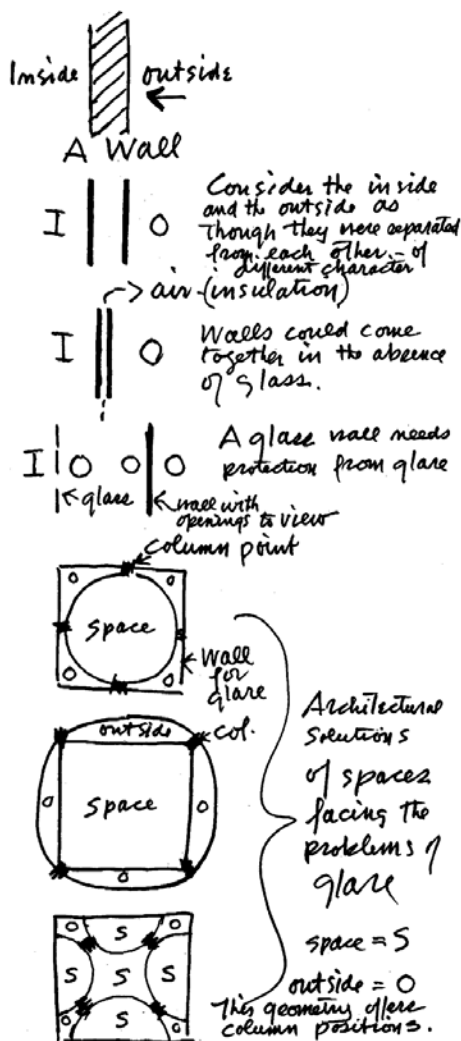 Inside outside
A Wall
I O
Consider the inside
and the outside as
though they were separated
from each other - of
different character
air - (insulation)
I O
Walls could come
together in the absence
of glass.
I O O O
A glass wall needs
protection from glare
glass
wall with
openings to view
column point
O O
space
O O
Wall
for
glare
outside
col.
O space O
O
Architectural
solutions
of spaces
facing the
problems of
glare
O S O
S S S
O S O
space = S
outside = O
This geometry offers
column positions.